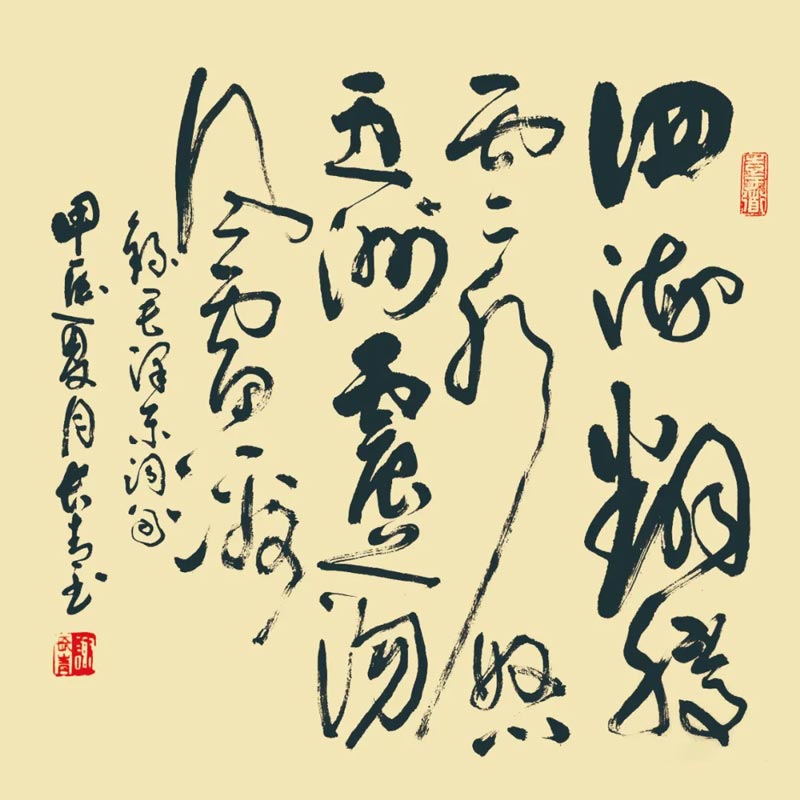 四海翻腾
雲水怒
五洲震荡
风雷激
録毛泽东词句
甲辰夏月长青书